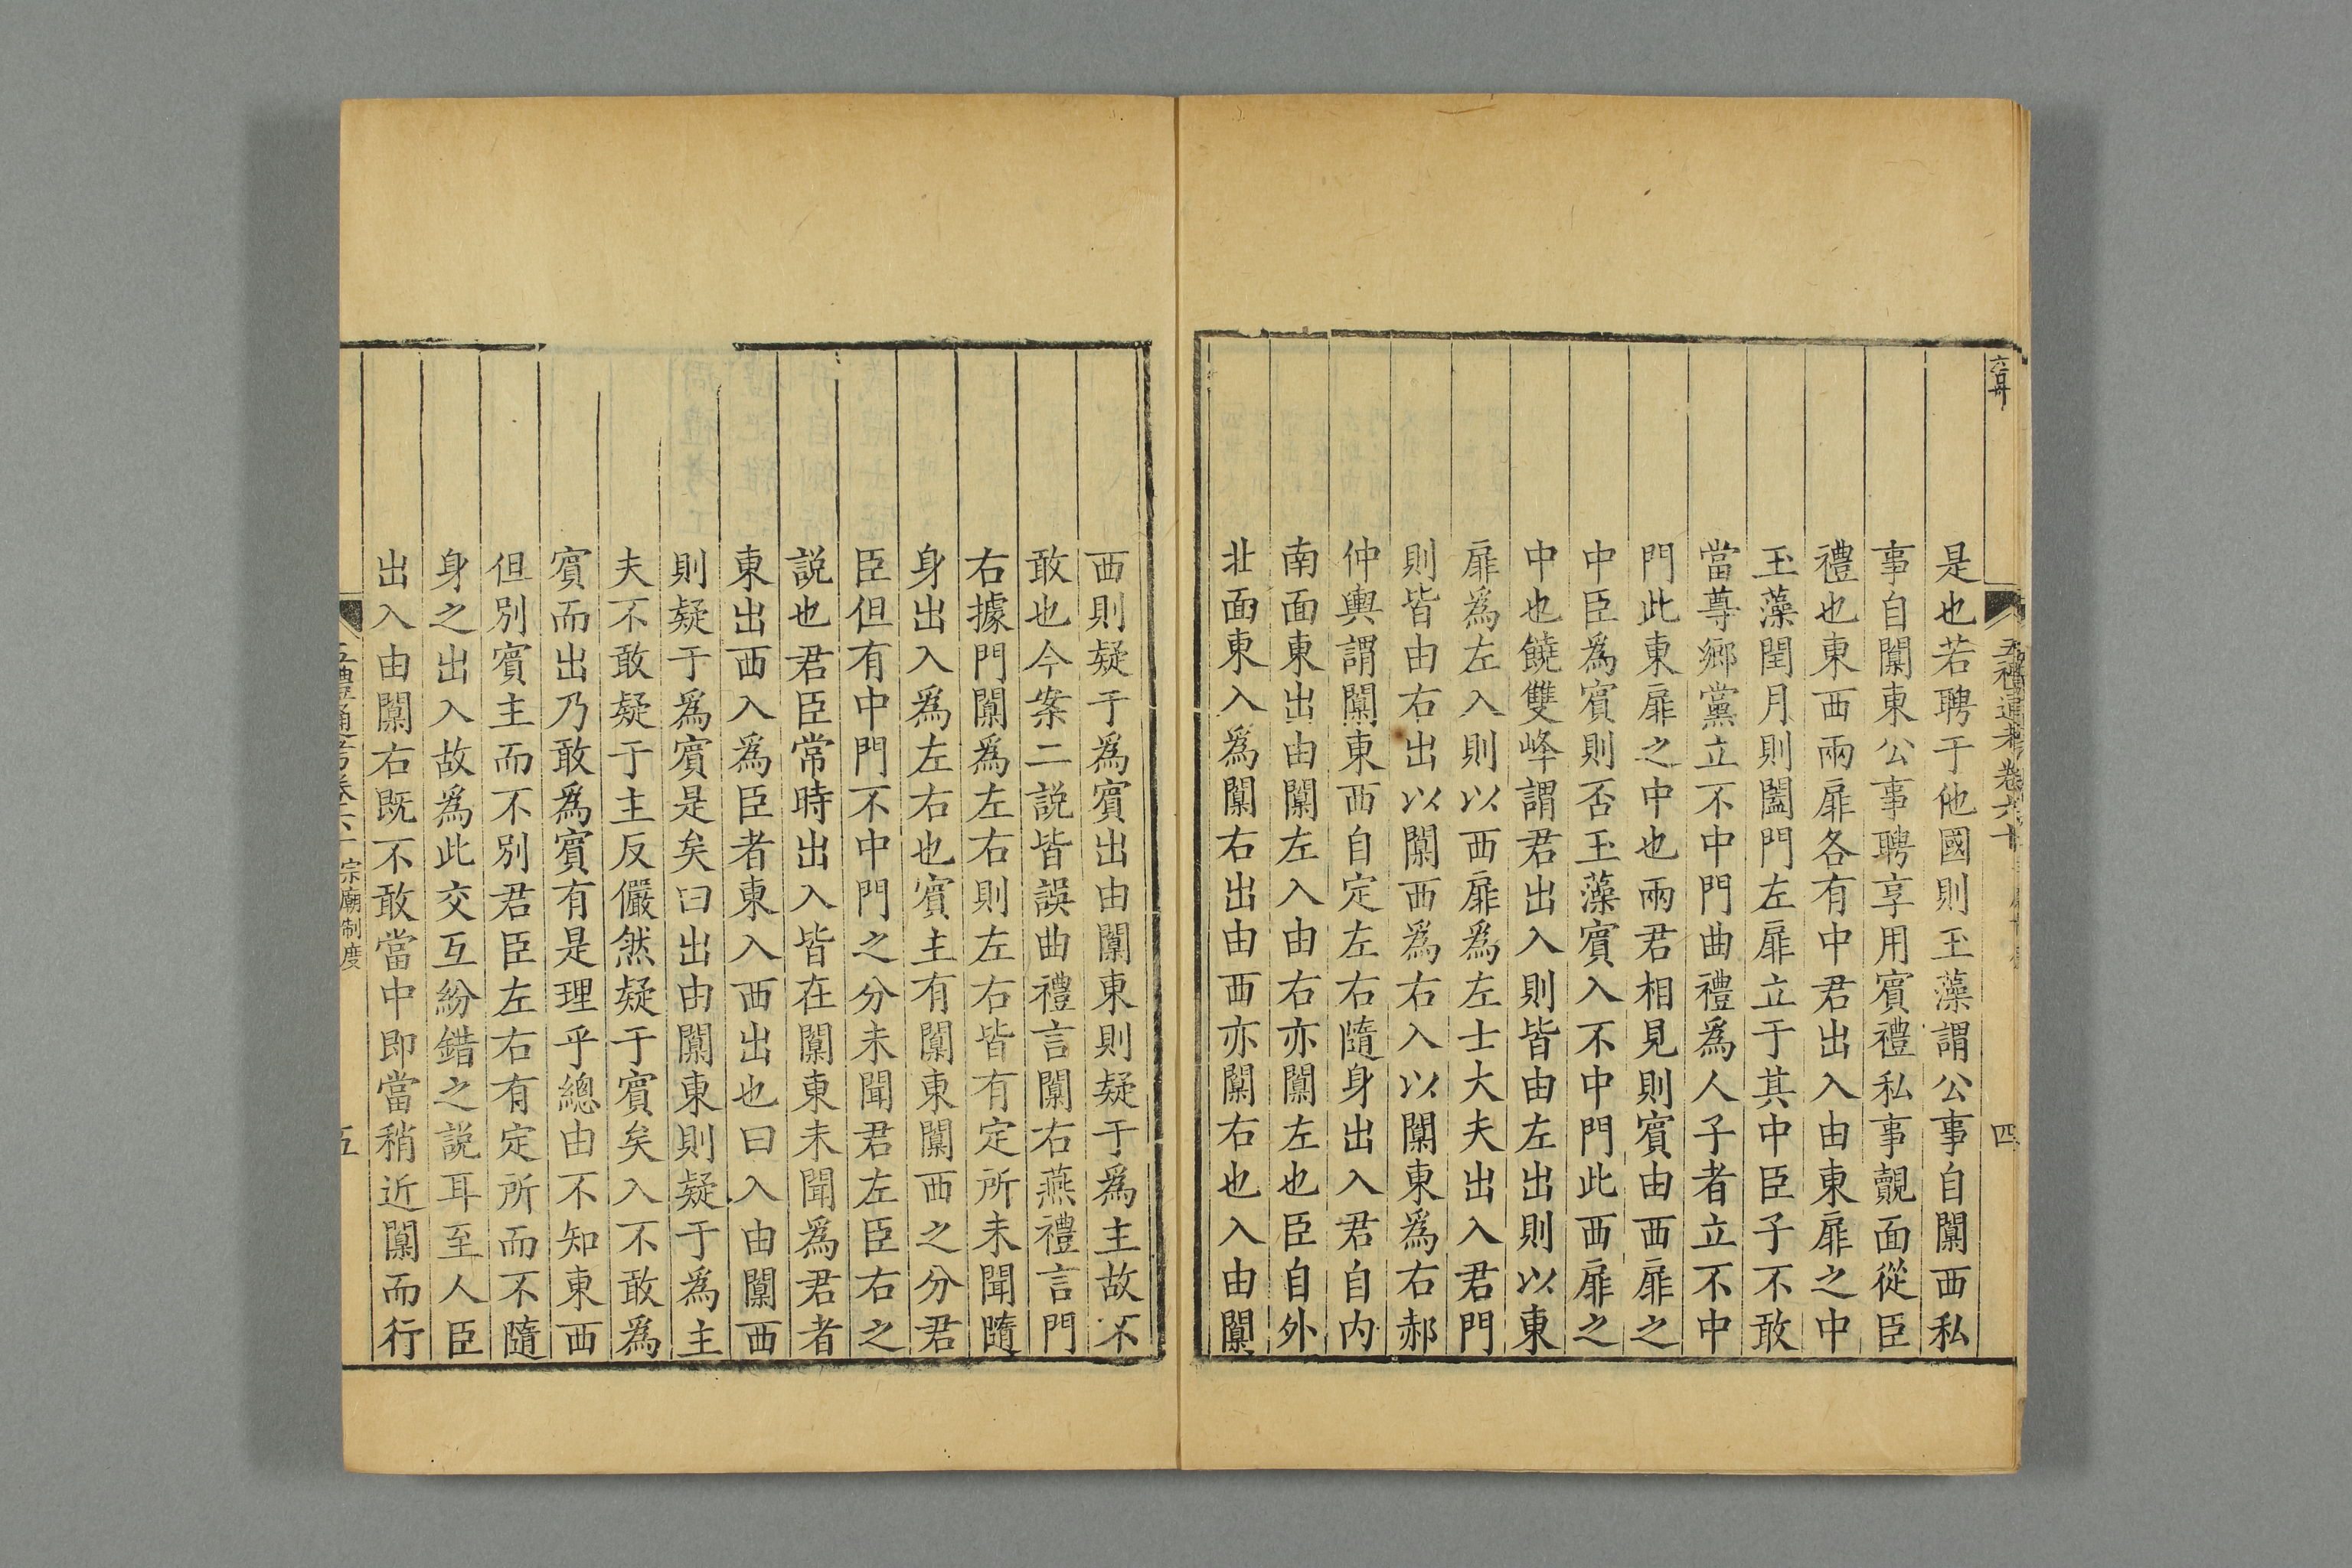 五禮通考卷六十
四
是也若聘于他國則玉藻謂公事自闑西私
事自闑東公事聘享用賓禮私事覿面從臣
禮也東西兩扉各有中君出入由東扉之中
玉藻閏月則闔門左扉立于其中臣子不敢
當尊鄉黨立不中門曲禮爲人子者立不中
門此東扉之中也兩君相見則賓由西扉之
中臣爲賓則否玉藻賓入不中門此西扉之
中也饒雙峰謂君出入則皆由左出則以東
扉爲左入則以西扉爲左士大夫出入君門
則皆由右出以闑西爲右入以闑東爲右郝
仲輿謂闑東西自定左右隨身出入君自内
南面東出由闑左入由右亦闑左也臣自外
北面東入爲闑右出由西亦闑右也入由闑
西則疑于爲賓出由闑東則疑于爲主故不
敢也今案二説皆誤曲禮言闑右燕禮言門
右據門闑爲左右則左右皆有定所未聞隨
身出入爲左右也賓主有闑東闑西之分君
臣但有中門不中門之分未聞君左臣右之
説也君臣常時出入皆在闑東未聞爲君者
東出西入爲臣者東入西出也曰入由闑西
則疑于爲賓是矣曰出由闑東則疑于爲主
夫不敢疑于主反儼然疑于賓矣入不敢爲
賓而出乃敢爲賓有是理乎總由不知東西
但別賓主而不別君臣左右有定所而不隨
身之出入故爲此交互紛錯之説耳至人臣
出入由闑右既不敢當中即當稍近闑而行
五禮通考卷六十 宗廟制度
五